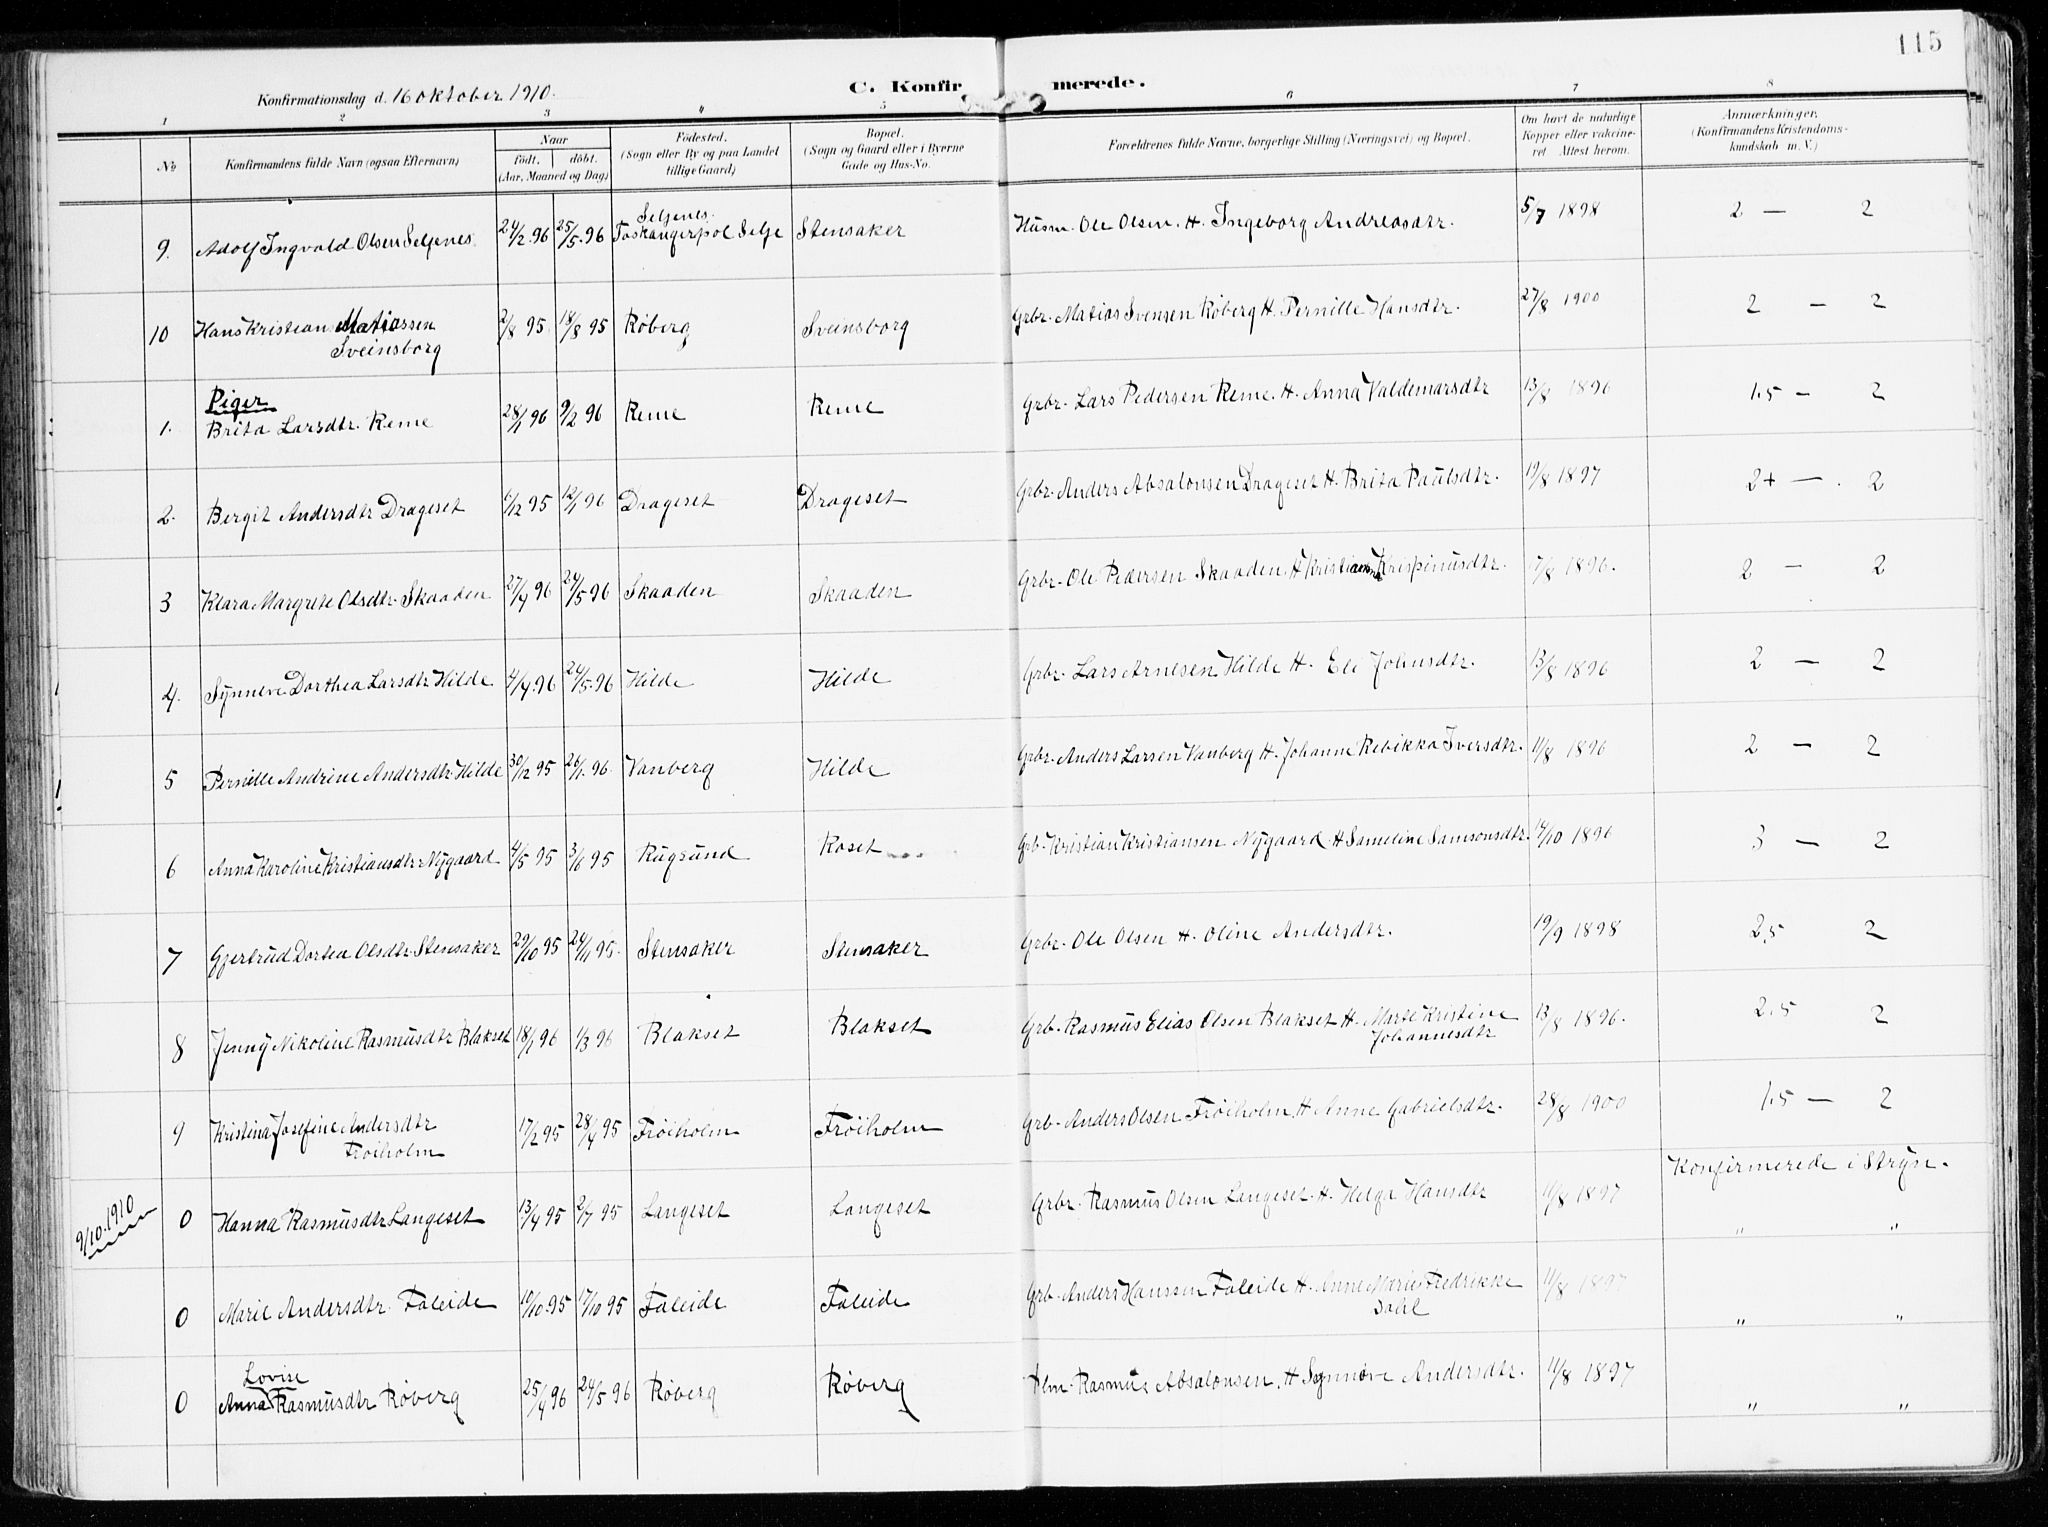 115
C. Konfirmerede.
Konfirmationsdag d. 16 oktober 1910.
1 2 3 4 5 6 7 8
No
Konfirmandens fulde Navn (ogsaa Efternavn)
Naar
født. døbt.
(Aar, Maaned og Dag)
Fødested.
(Sogn eller By og paa Landet
tillige Gaard)
Bopæl.
(Sogn og Gaard eller i Byerne
Gade og Hus-No.
Forældrenes fulde Navne, borgerlige Stilling (Næringsvei) og Bopæl.
Om havt de naturlige
Kopper eller vakcine-
ret. Attest herom.
Anmærkninger.
(Konfirmandens Kristendoms-
kundskab m. V.)
Seljenes
9. Adolf Ingvald Olsen Seljenes 24/2.96 25/5.96 Selje Stensaker Husm. Ole Olsen. H. Ingeborg Andreasdtr. 5/7 1898 2 — 2
10 Hans Kristian Matiassen 2/8 95 18/8 95 Røberg Sveinsborg Grbr. Matias Svensen Røberg H. Pernille Hansdtr. 27/8 1900 2 — 2
Sveinsborg
Piger
1. Brita Larsdtr. Reme 28/1 96 9/2 96 Reme Reme Grbr. Lars Pedersen Reme. H. Anna Valdemarsdtr 13/8 1896 1.5 — 2
2. Bergit Andersdtr Drageset 1/12 95 12/1 96 Drageset Drageset Grbr. Anders Absalonsen Drageset H. Brita Paulsdtr. 19/8 1897 2+ — 2
3 Klara Margrete Olsdtr. Skaaden 27/4 96 24/5 96 Skaaden Skaaden Grbr. Ole Pedersen Skaaden. H Kristianna Krispinusdtr. 17/8 1896. 2 — 2
4. Synneve Dorthea Larsdtr Hilde 4/4.96 24/5.96 Hilde Hilde Grbr. Lars Arnesen Hilde H. Eli Johnsdtr. 13/8 1896 2 — 2
5 Pernille Andrine Andersdtr. Hilde 30/12 95 26/1. 96. Vanberg Hilde Grbr. Anders Larsen Vanberg H. Johanne Rebikka Iversdtr. 11/8 1896 2 — 2
6 Anna Karoline Kristiansdtr Nygaard 4/5 95 3/6 95 Rugsund Roset Grb. Kristian Kristiansen Nygaard H Sameline Samsonsdtr. 14/10 1896 3 — 2
7 Gjertrud Dortea Olsdtr. Stensaker 29/10 95 24/11 95. Stensaker Stensaker Grbr. Ole Olsen H. Oline Andersdtr. 19/9 1898 2.5 2
8 Jenny Nikoline Rasmusdtr Blakset 18/1 96 1/3 96 Blakset Blakset Grb. Rasmus Elias Olsen Blakset H. Marte Kristine 13/8 1896. 2.5 2
Johannesdtr
9 Kristina Josefine Andersdtr 17/2 95 28/4 95 Frøiholm Frøiholm Grb. Anders Olsen Frøiholm H Anne Gabrielsdtr. 28/8 1900 1.5 — 2
Frøiholm
Konfirmerede i Stryn.
9/10. 1910 0 Hanna Rasmusdtr Langeset 13/4 95 2/7 95 Langeset Langeset Grbr. Rasmus Olsen Langeset. H. Helga Hansdtr 11/8 1897 " "
0 Marie Andersdtr. Faleide 10/10.95 17/10 95 Faleide Faleide Grb. Anders Hanssen Faleide H. Anne Marie Fredrikke 11/8 1897 " "
Dahl
Lovise
0 Anna Rasmusdtr Røberg 25/4 96 24/5 96 Røberg Røberg Rasmus Absalonsen. H Synnøve Andersdtr. 11/8 1897 " "